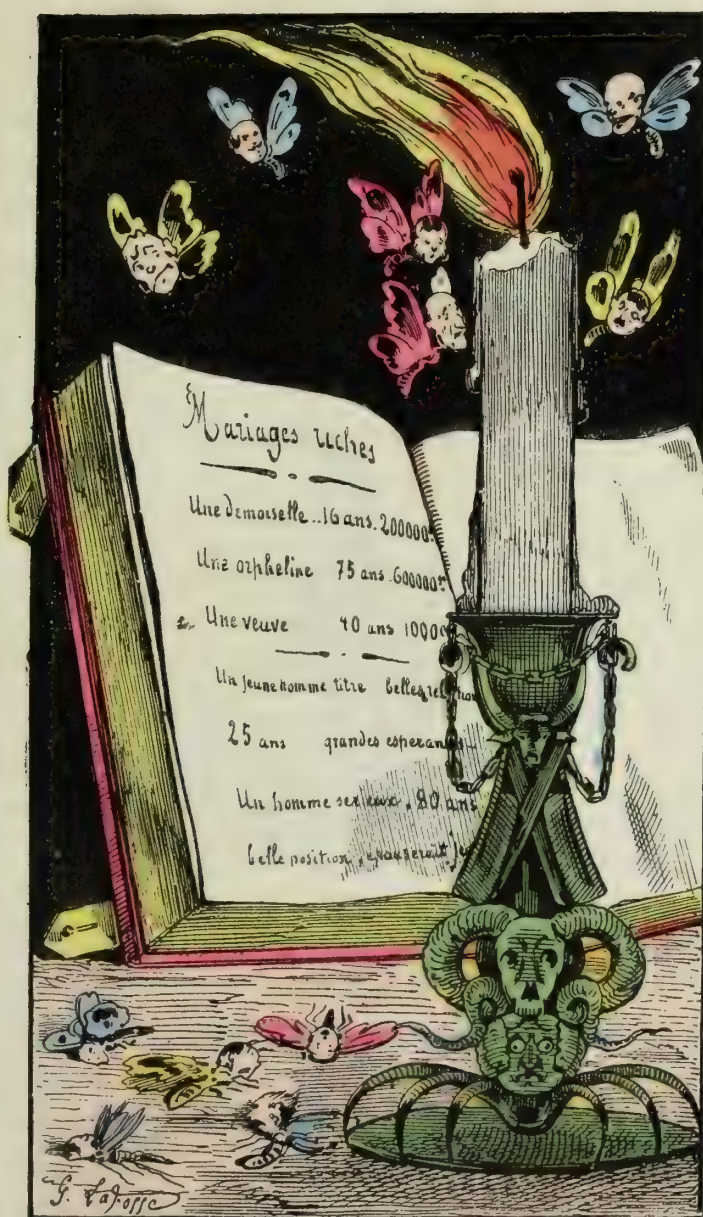 Mariages riches
Une demoiselle .. 16 ans . 200000
Une orpheline 75 ans . 600000
Une veuve 40 ans 1000
Un jeune homme titre belles
25 ans grandes
Un homme serieux . 80 ans
belle position ,
G. Lafosse